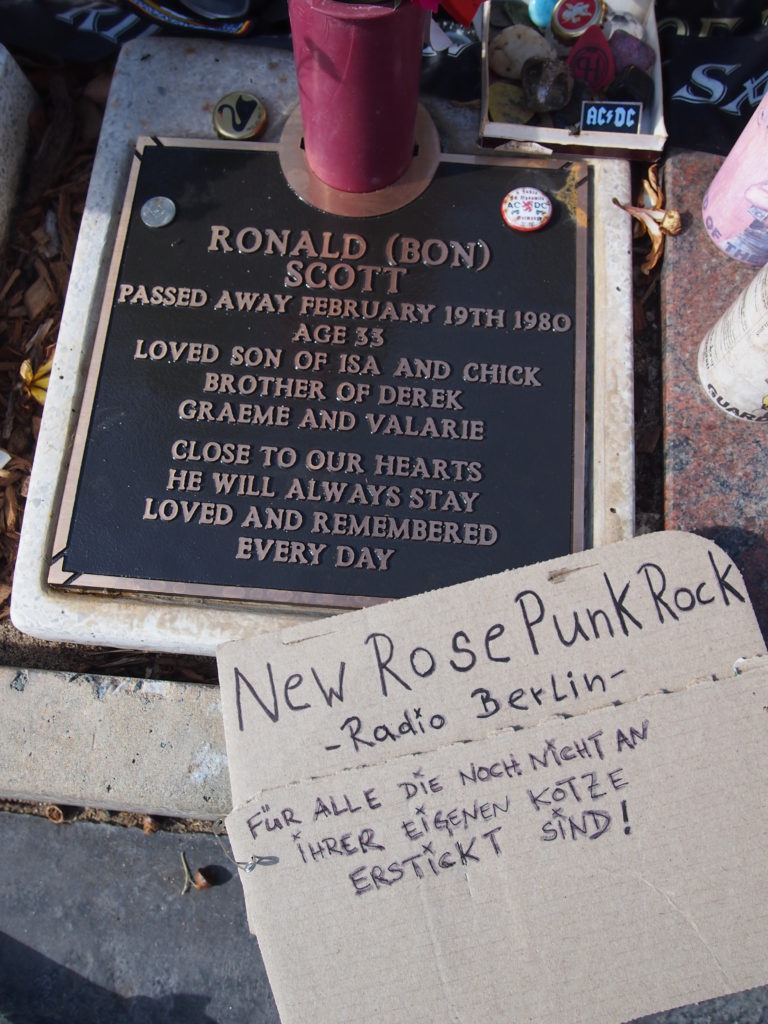 AC⚡DC
AC⚡DC
RONALD (BON)
SCOTT
PASSED AWAY FEBRUARY 19TH 1980
AGE 33
LOVED SON OF ISA AND CHICK
BROTHER OF DEREK
GRAEME AND VALARIE
CLOSE TO OUR HEARTS
HE WILL ALWAYS STAY
LOVED AND REMEMBERED
EVERY DAY
New Rose Punk Rock
-Radio Berlin-
FÜR ALLE DIE NOCH NICHT AN
IHRER EIGENEN KOTZE
ERSTICKT SIND!